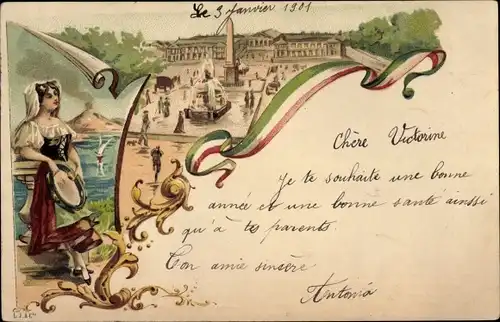 Le 3 Janvier 1901
Chère Victorine
Je te souhaite une bonne
année et une bonne santé ainssi
qu'à tes parents.
Ton amie sinsère
Antonia